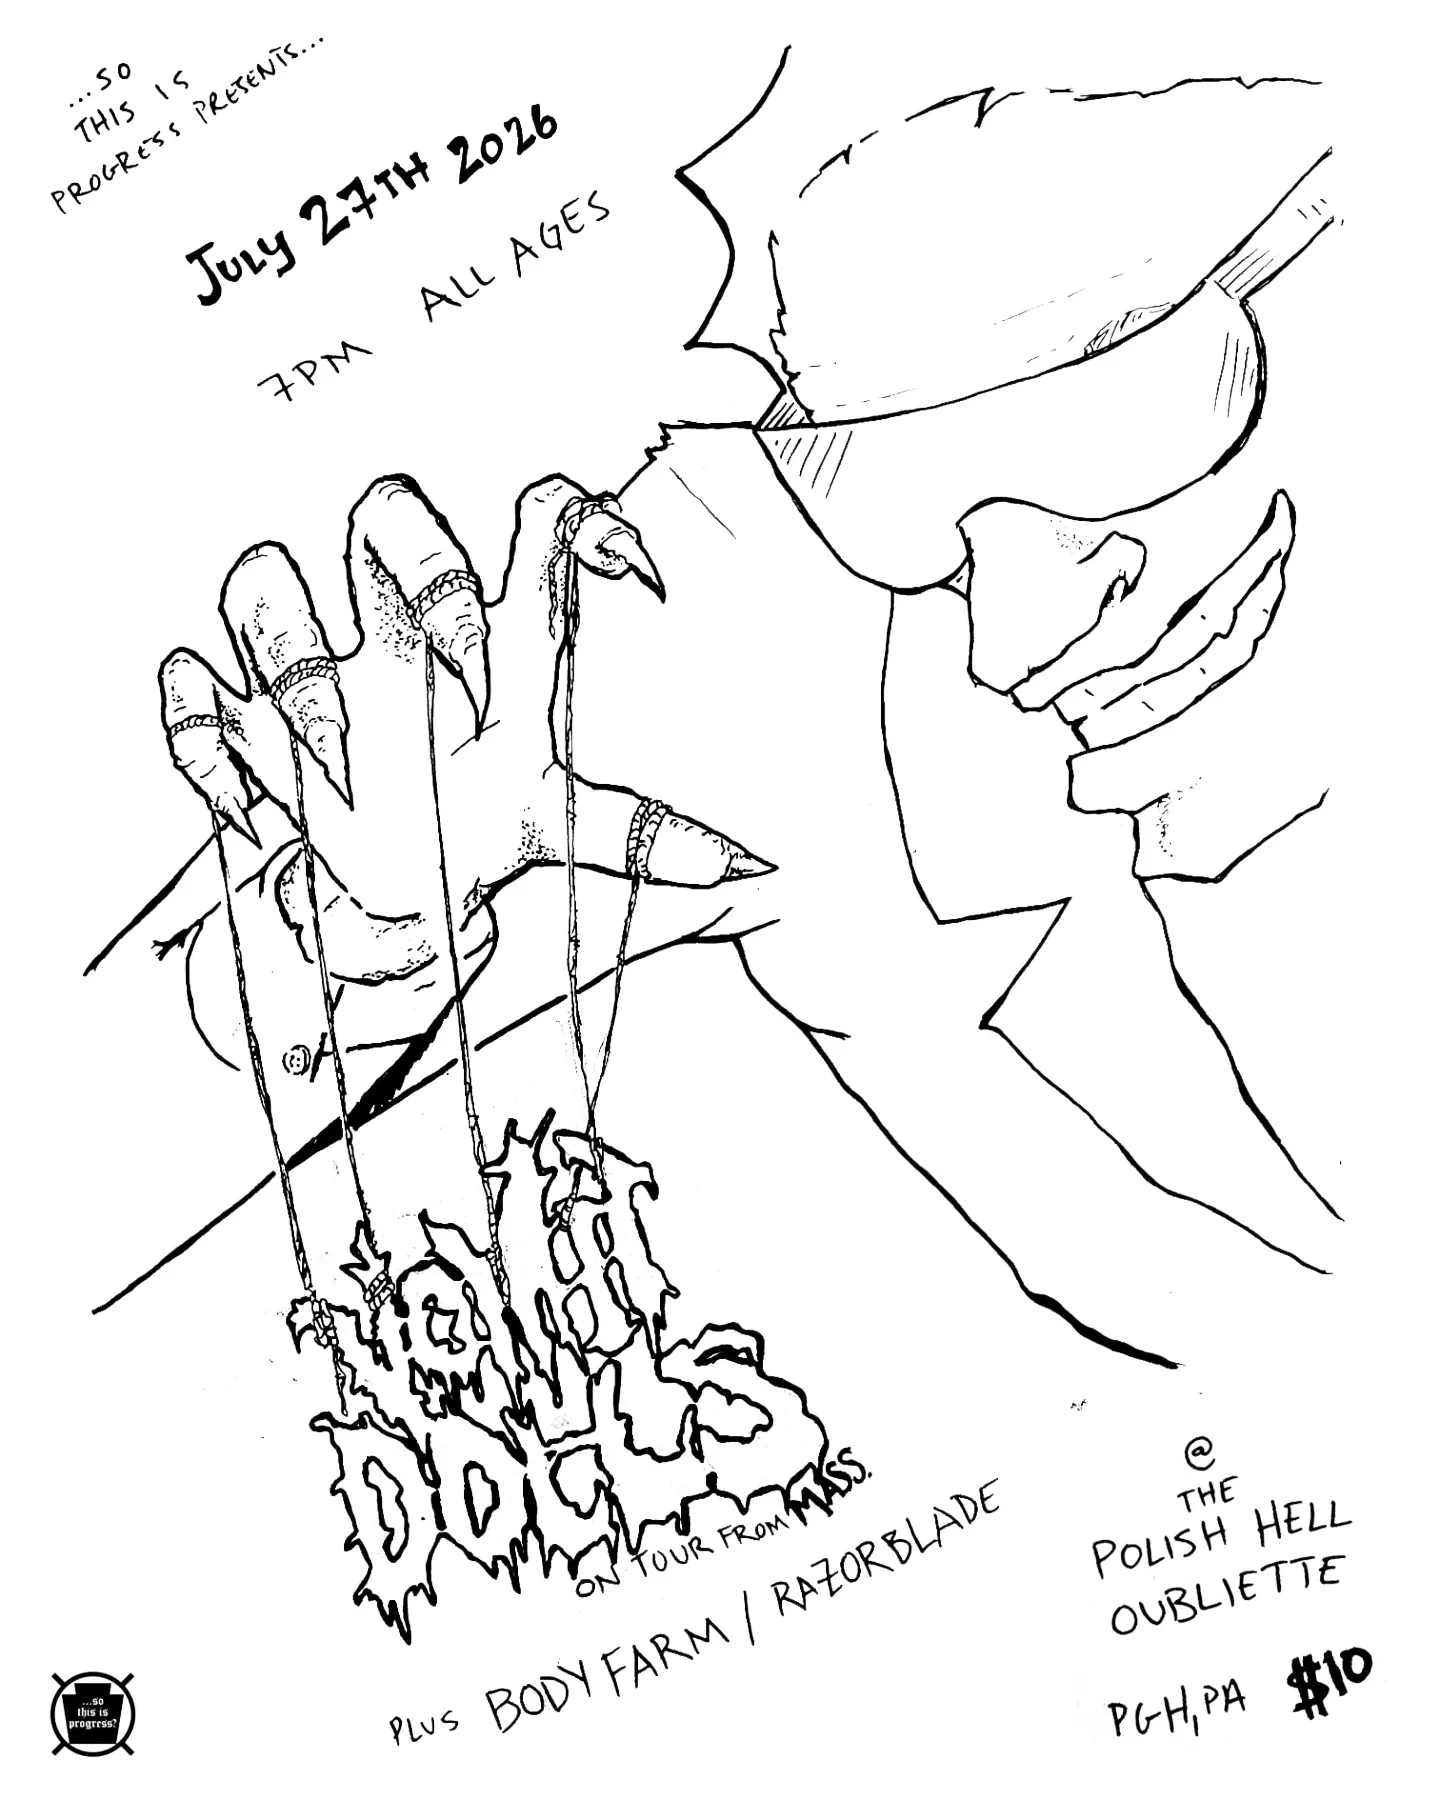 ...SO
THIS IS
PROGRESS PRESENTS...
JULY 27TH 2026
7PM ALL AGES
ON TOUR FROM MASS.
PLUS BODY FARM / RAZORBLADE
@
THE
POLISH HELL
OUBLIETTE
PGH, PA $10
...so
this is
progress?